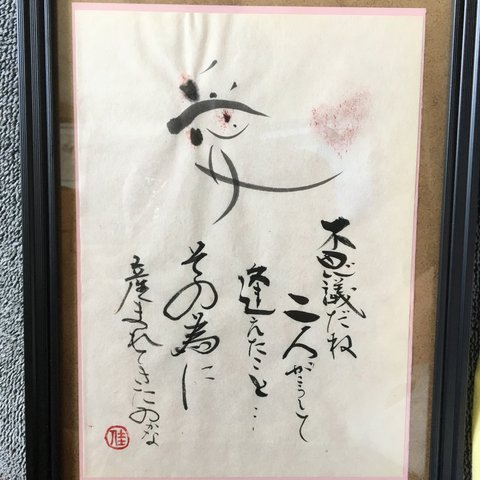 愛
不思議だね
二人がこうして
逢えたこと…
その為に
産まれてきたのかな
佳